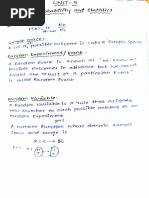 UNIT-5
Probability and Statistics
P(E) =
Sample Space:
A set of possible outcome is called Sample Space
Random Experiment / Event:
A Random Event is known as we know all
possible outcomes in advance but we can't
the result of a particular Event
is called Random Event
Random Variable:
A Random variable is a rule that assigns
number to each possible outcome of an
random Experiment
A function whose domain Sample
Space and range is